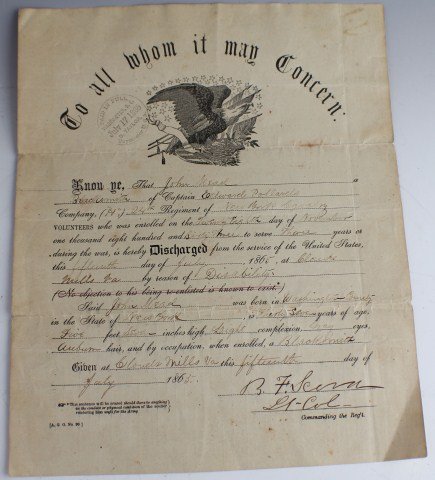 To all whom it may Concern:
Know ye, That John Mead a
of Captain Edward
Company, (H,) 24th Regiment of New York Cavalry
VOLUNTEERS who was enrolled on the day of November
one thousand eight hundred and Sixty Three to serve Three years or
during the war, is hereby Discharged from the service of the United States,
this fifteenth day of July 1865, at Clouds
Mills Va by reason of Disability
(No objection to his being re-enlisted is known to exist.)
Said John Mead was born in Washington County
in the State of New York is Forty years of age,
Five feet inches high, Light complexion, eyes,
Auburn hair, and by occupation, when enrolled, a Blacksmith
Given at Clouds Mills Va this fifteenth day of
July 1865.
B. F.
Lt-Col
Commanding the Reg't.
This sentence will be erased should there be anything
in the conduct or physical condition of the soldier
rendering him unfit for the Army.
[A. G. O. No. 99.]